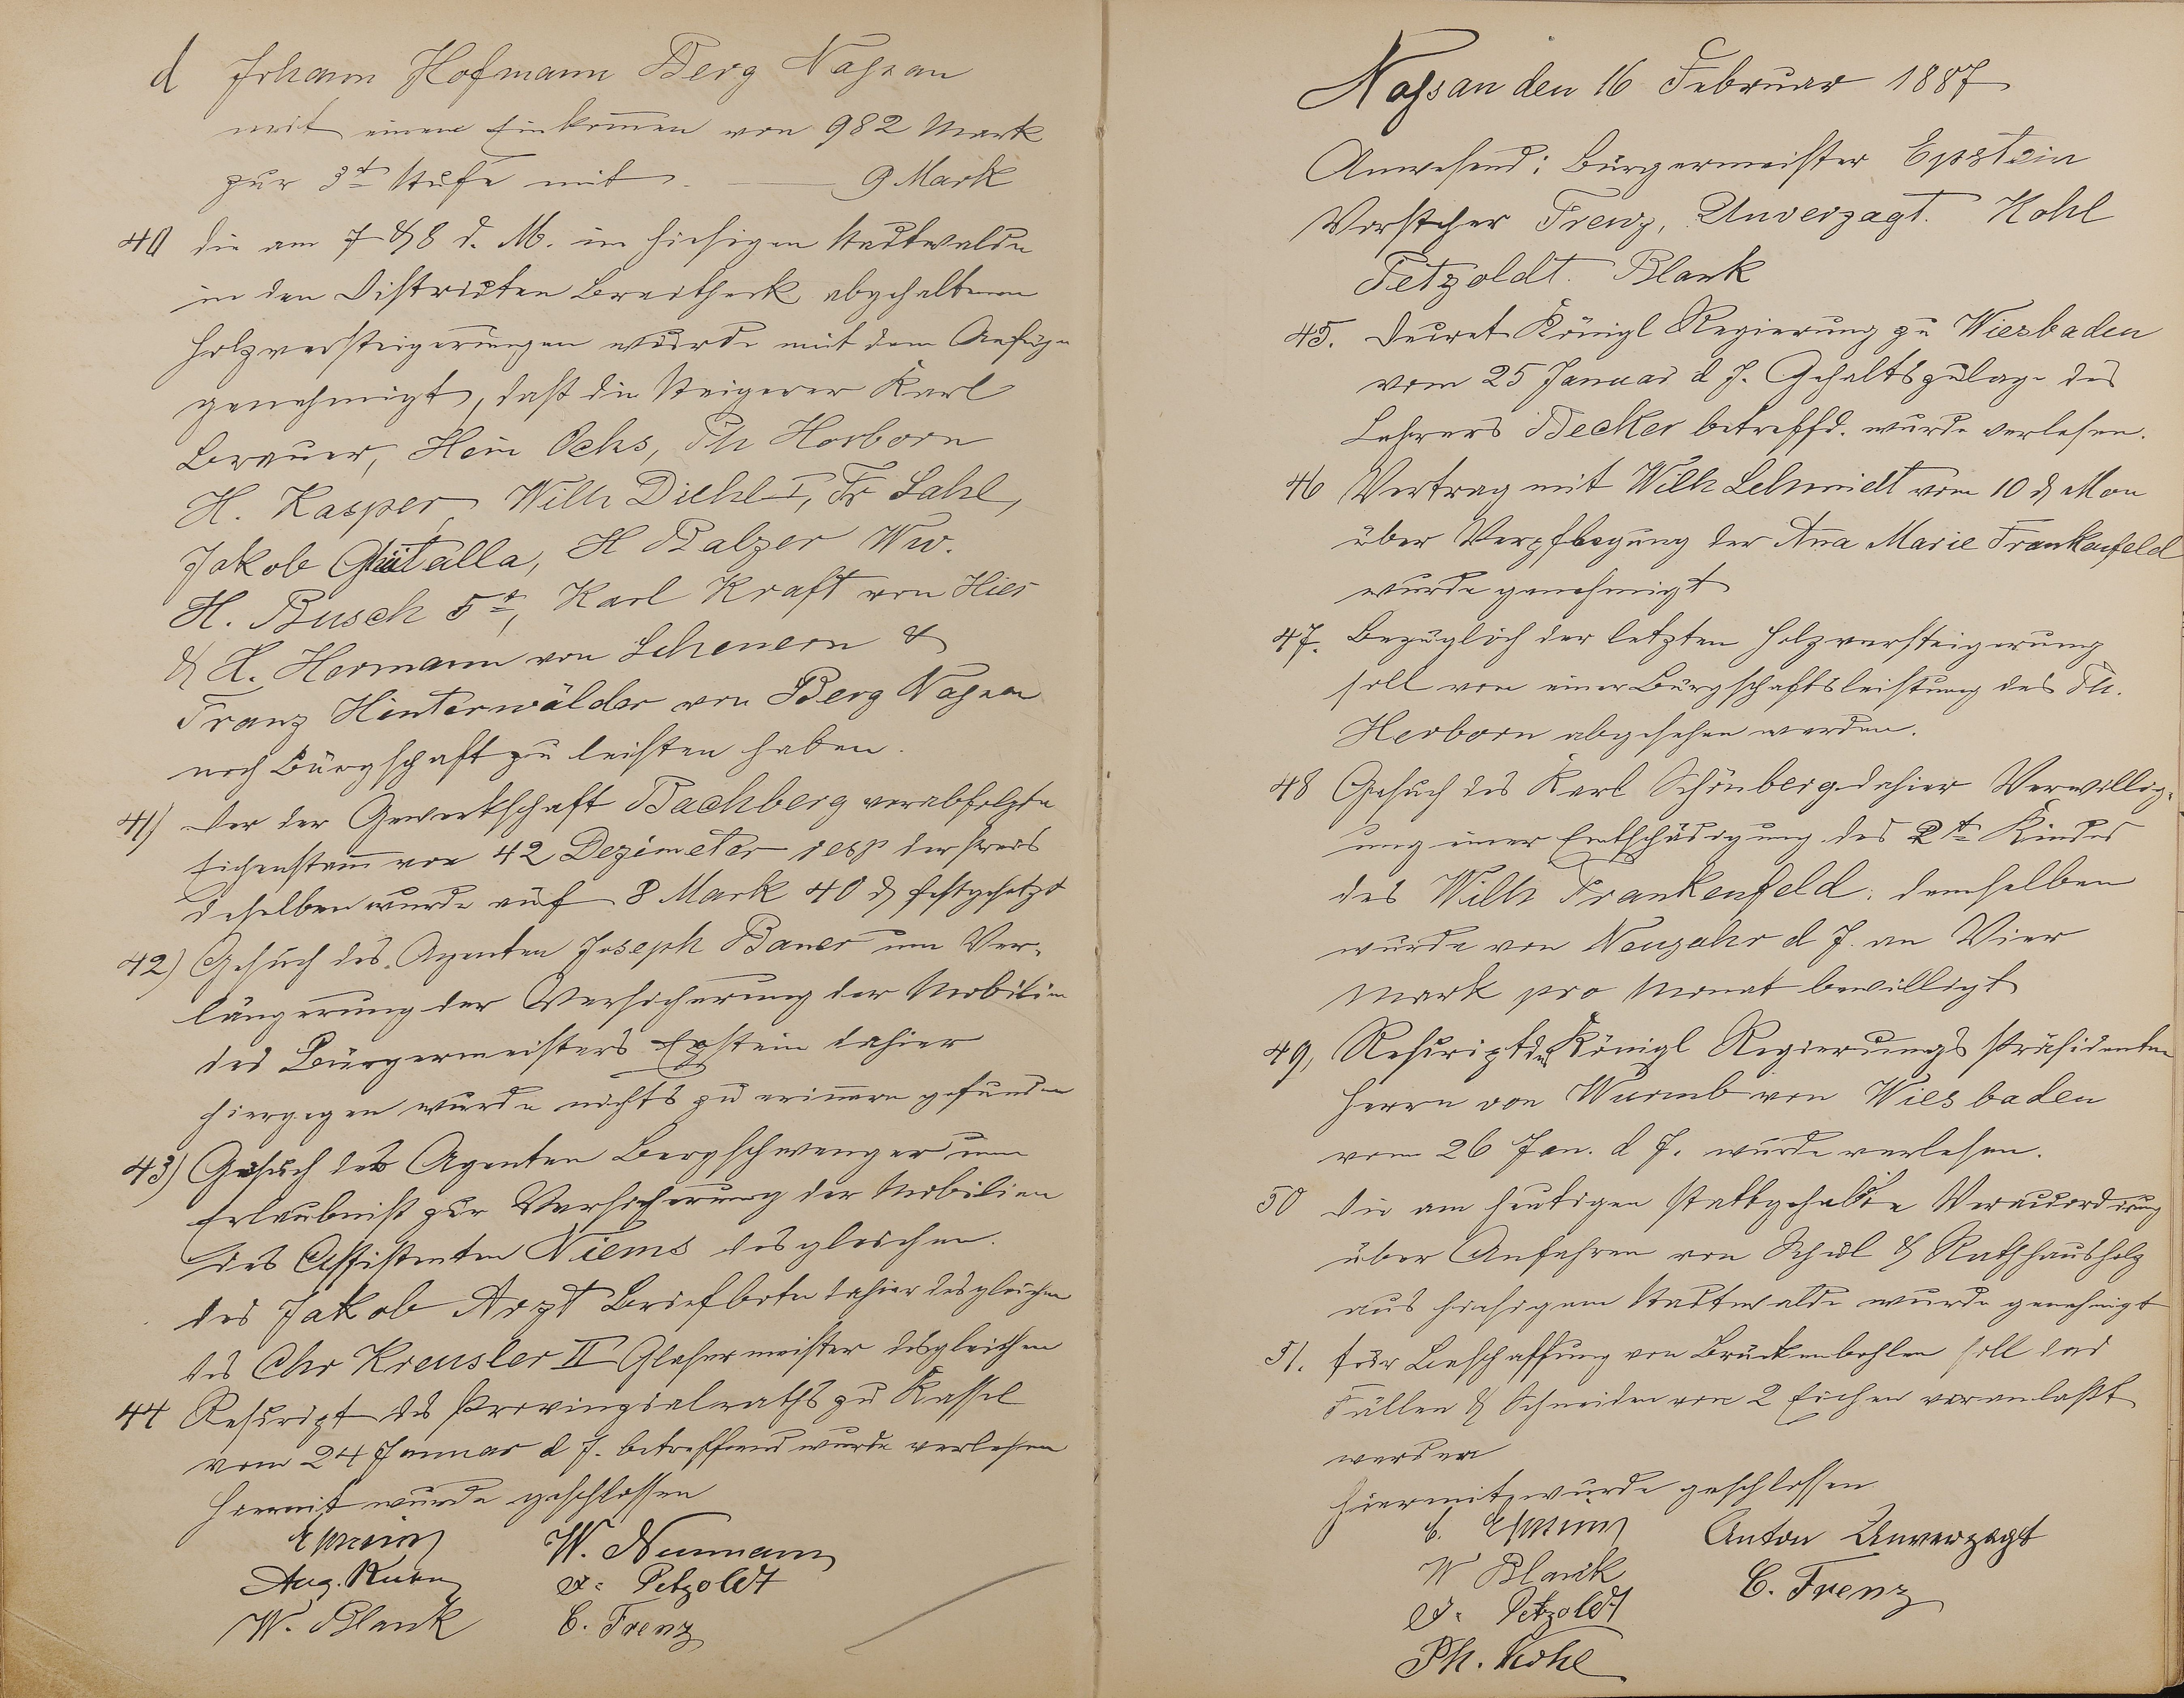 d Johann Hofmann Berg Nassau
mit einem Einkommen von 982 Mark
zur 3t Stufe mit. — 9 Mark
40 die am 7 & 8 d. M. im hiesigen Stadtwalde
in den Districten Breitheck abgehaltenen
Holzversteigerungen wurde mit dem Anfügen
genehmigt, daß die Steigerer Karl
Brauer, Hein Ochs, Ph Herborn
H. Kasper, Wilh Diehl I, Fr Sahl,
Jakob, H Balzer Ww.
H. Busch 5t, Karl Kraft von Hier
& H. Hermann von Scheuern &
Franz Hinterwälder von Berg Nassau
noch Bürgschaft zu leisten haben.
41) Der der Gewerkschaft Bachberg verabfolgte
Eichenstam̅ von 42 Dezimeter resp der Preis
deselben wurde auf 8 Mark 40 ₰ festgesetzt
42) Gesuch des Agenten Joseph Bauer um Ver-
längerung der Versicherung der Mobilien
des Bürgermeisters Epstein dahier
hiergegen wurde nichts zu erinnern gefunden
43) Gesuch des Agenten Bergschwenger um
Erlaubniß zur Versicherung der Mobilien
des Assistenten Niems desgleichen.
des Jakob Arzt Briefbote dahier desgleichen
des Chr Kreusler II Glasermeister desgleichen
44 Rescript des Provinzialraths zu Kassel
vom 24 Januar d J. betreffend wurde verlesen
Hiermit wurde geschlossen
Epstein W. Neumann
Aug. A. Petzoldt
W. Blank C. Frenz
Nassau den 16 Februar 1887
Anwesend: Bürgermeister Epstein
Vorsteher Frenz, Unverzagt. Kohl
Petzoldt. Blank
45. Decret Königl Regierung zu Wiesbaden
vom 25 Januar d J. Gehaltszulage des
Lehrers Becker betreffd. wurde verlesen.
46 Vertrag mit Wilh Schmidt vom 10 d Mon
über Verpflegung der Ana Marie Frankenfeld
wurde genehmigt
47. Bezüglich der letzten Holzversteigerung
soll von einer Bürgschaftsleistung des Ph.
Herborn abgesehen werden.
48 Gesuch des Karl Schönberg dahier Verwillig-
ung einer Entschädigung des 2t Kindes
des Wilh Frankenfeld. demselben
wurde von Neujahr d J. an Vier
Mark pro Monat bewilligt
49, Rescript des Königl Regierungs Präsidenten
Herrn von Wurmb von Wiesbaden
vom 26 Jan. d J. wurde verlesen.
50 Die am heutigen stattgehabte
über Anfahren von Schul & Rathhausholz
aus hiesigem Stadtwalde wurde genehmigt
51. Für Beschaffung von Brückenbohlen soll das
Fällen & Schneiden von 2 Eichen veranlaßt
werden
Hiermit wurde geschlossen
C. Epstein Anton Unverzagt
W Blank C. Frenz
A. Petzoldt
Ph. Kohl